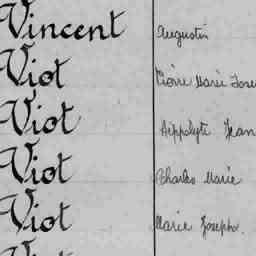 Vincent Augustin
Viot Pierre Marie
Viot Hippolyte Jean
Viot Charles Marie
Viot Marie Joseph.